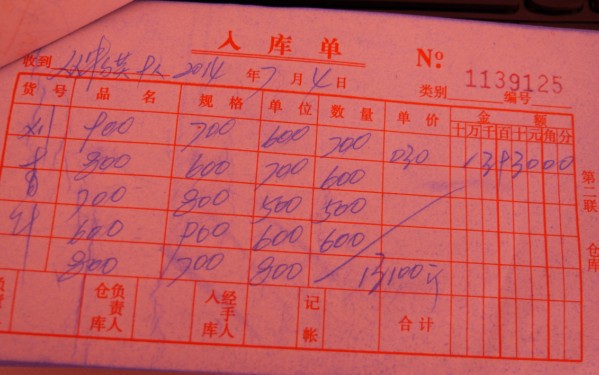 入库单
No
1139125
收到 2014 年 7 月 4 日 类别 编号
货号 品名 规格 单位 数量 单价 金额
十 万 千 百 十 元 角 分
900 700 600 700 030
800 600 700 600
700 800 500 500
600 900 600 600
800 700 800 13100
第二联 仓库
负责人
仓库 负责人
入库 经手人
记帐
合计